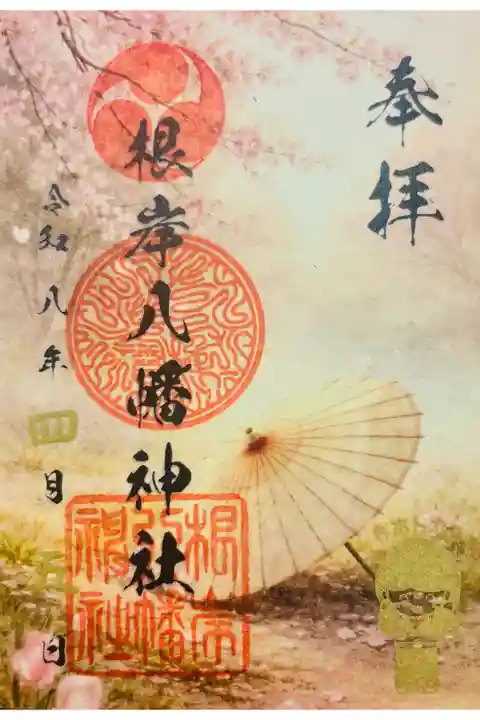 奉拝
根岸八幡神社
令和八年四月五日
根岸
八幡
神社